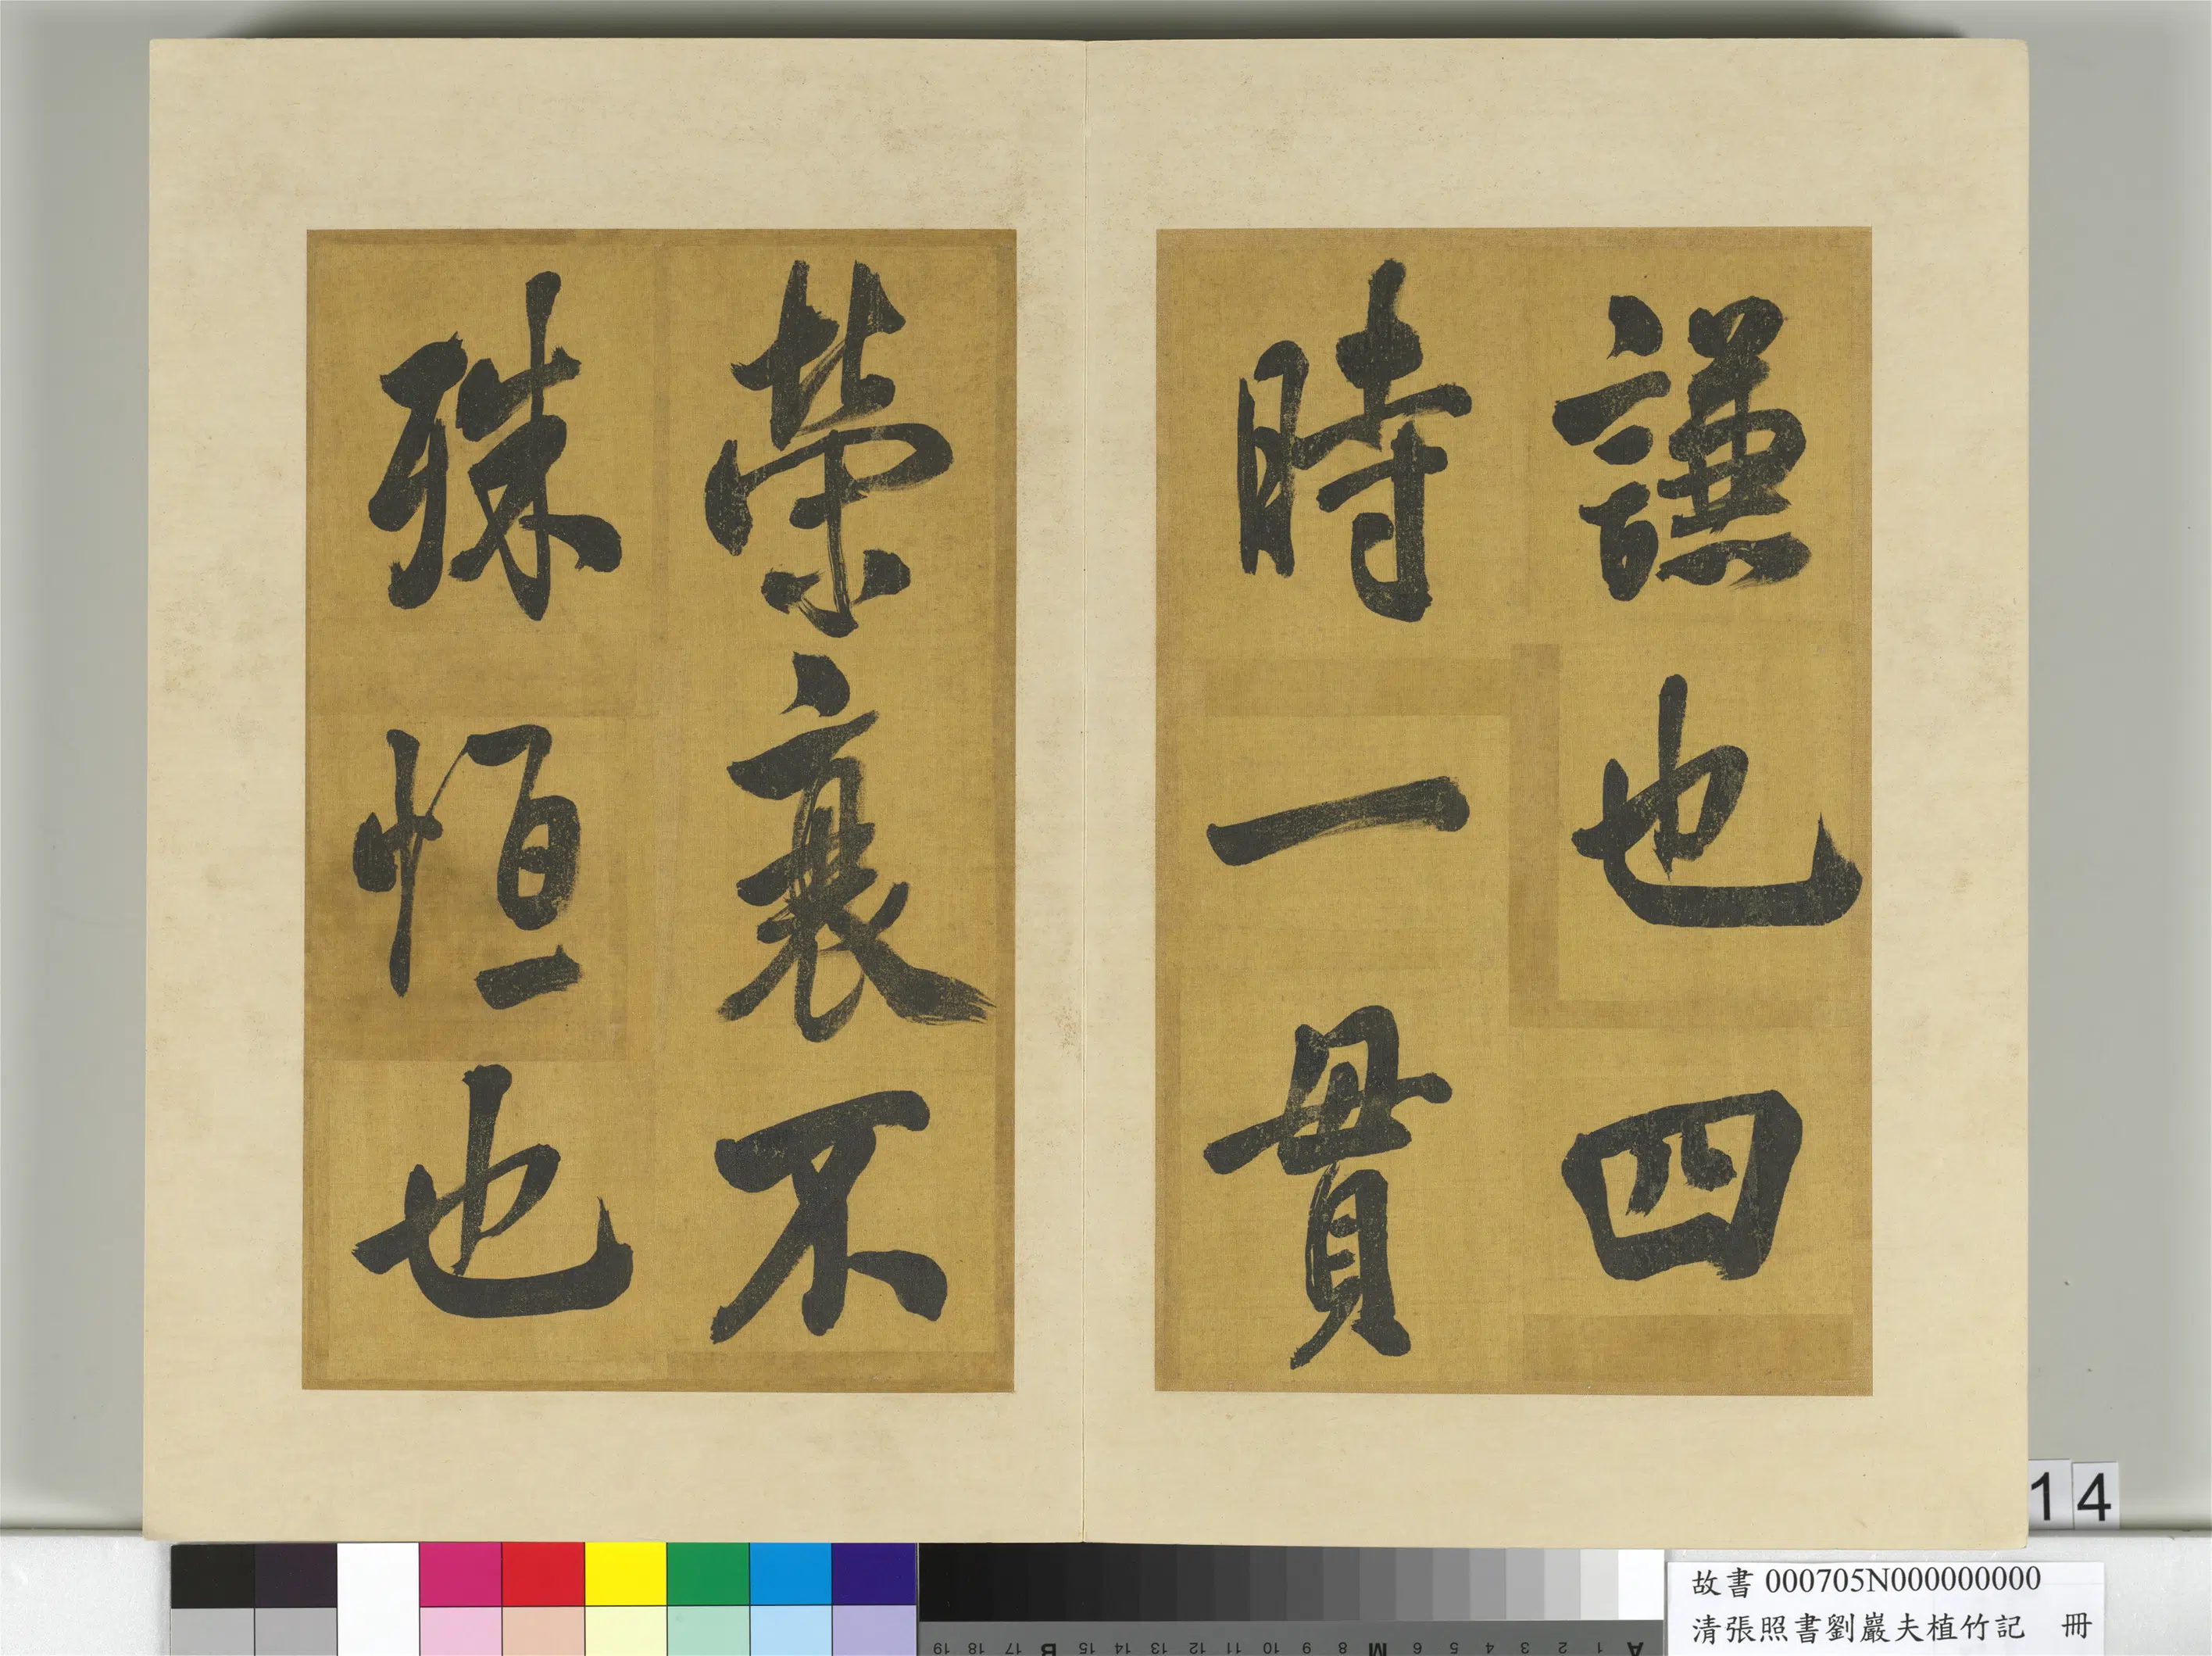 謙也四
時一貫
榮衰不
殊恒也
14
故書 000705N000000000
清張照書劉巖夫植竹記 冊
A 1 2 3 4 5 6 M 8 9 10 11 12 13 14 15 B 17 18 19